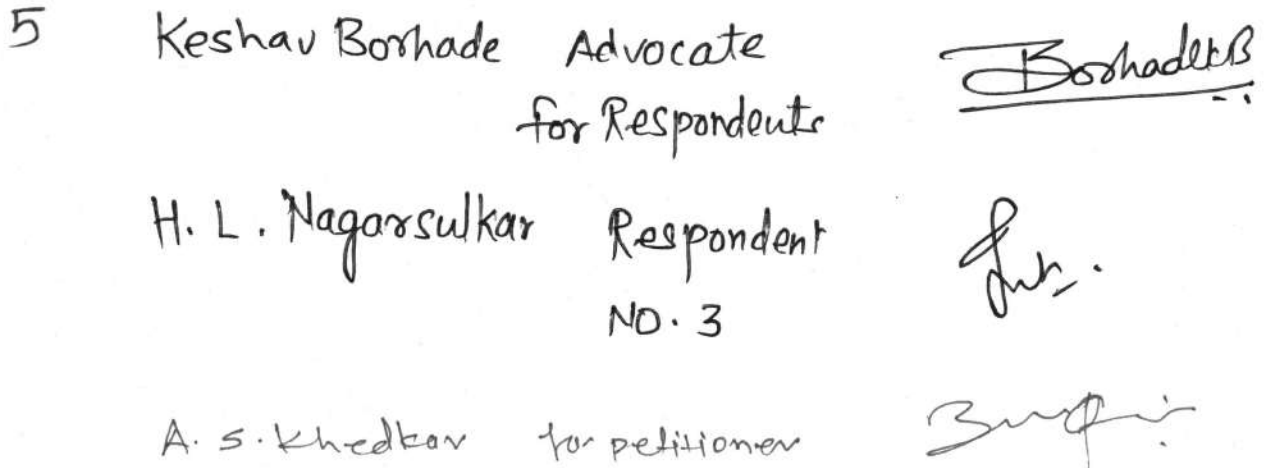 5 Keshav Borhade Advocate BorhadeKB
for Respondents
H. L. Nagarsulkar Respondent
NO. 3
A. S. Khedkar for petitioner